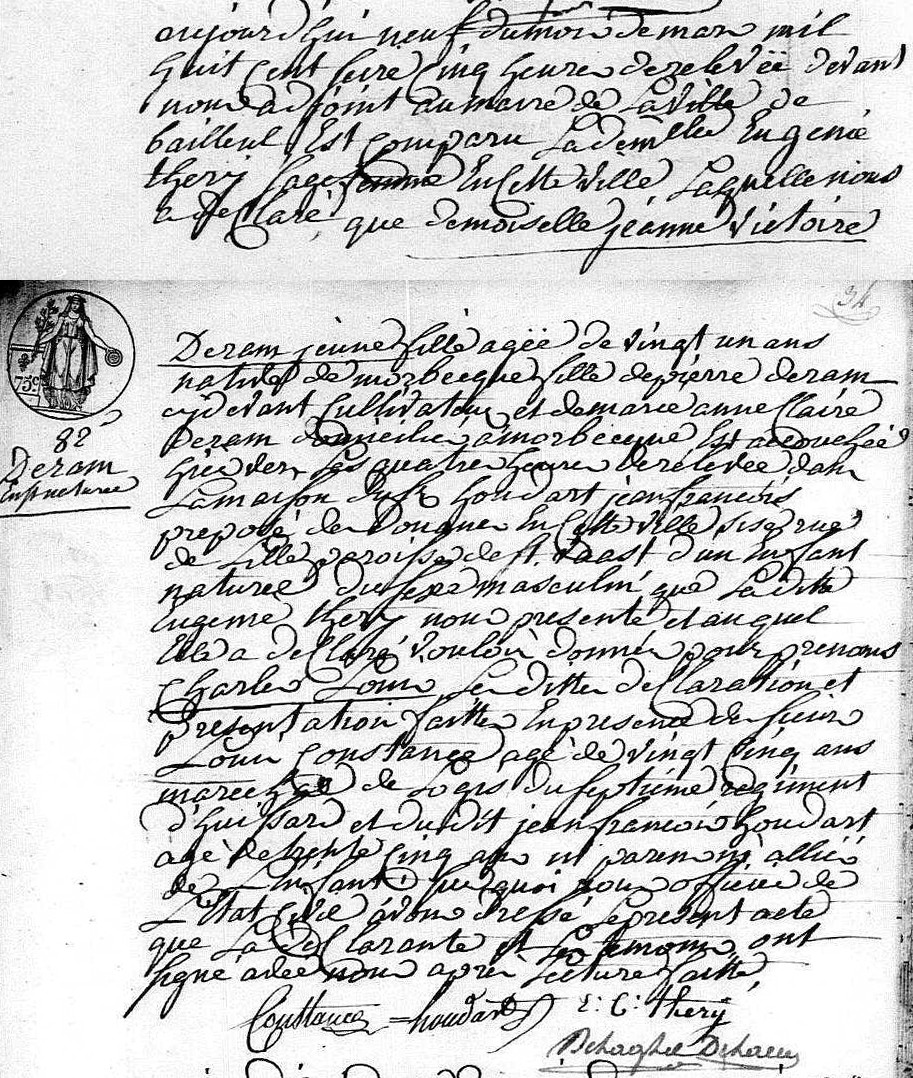 aujourd'hui neuf du mois de mars mil
huit cent seize cinq heures de relevée devant
nous adjoint au maire de la ville de
bailleul Est comparu la demlle Eugenie
thery sage femme En Cette ville laquelle nous
a déclaré que demoiselle jeanne Victoire
34
Deram jeune fille agée de vingt un ans
native de morbecque fille de pierre deram
cydevant cultivateur et de marie anne Claire
Deram domicilié à morbecque Est accouchée
hier vers les quatre heures de relevée dans
La maison du Sr houdart jean francois
preposé des Douanes En Cette ville sise rue
de Lille paroisse de st. Vaast d'un Enfant
naturel du sexe masculin que La ditte
Eugenie thery nous presente et auquel
Elle a déclaré vouloir donner pour prenoms
Charles Louis, les dittes déclaration et
presentation faittes En presence de sieur
Louis Constance agé de vingt cinq ans
marechal de Logis du septième regiment
d'huissard et dudit jean francois houdart
agé de trente cinq ans ni parens ni alliés
de L'Enfant; sur quoi nous officier de
L'Etat civil avons dressé le present acte
que La declarante et les temoins ont
signé avec nous après lecture faitte,
75c
82
Deram
Constance = houdart E: C: thery